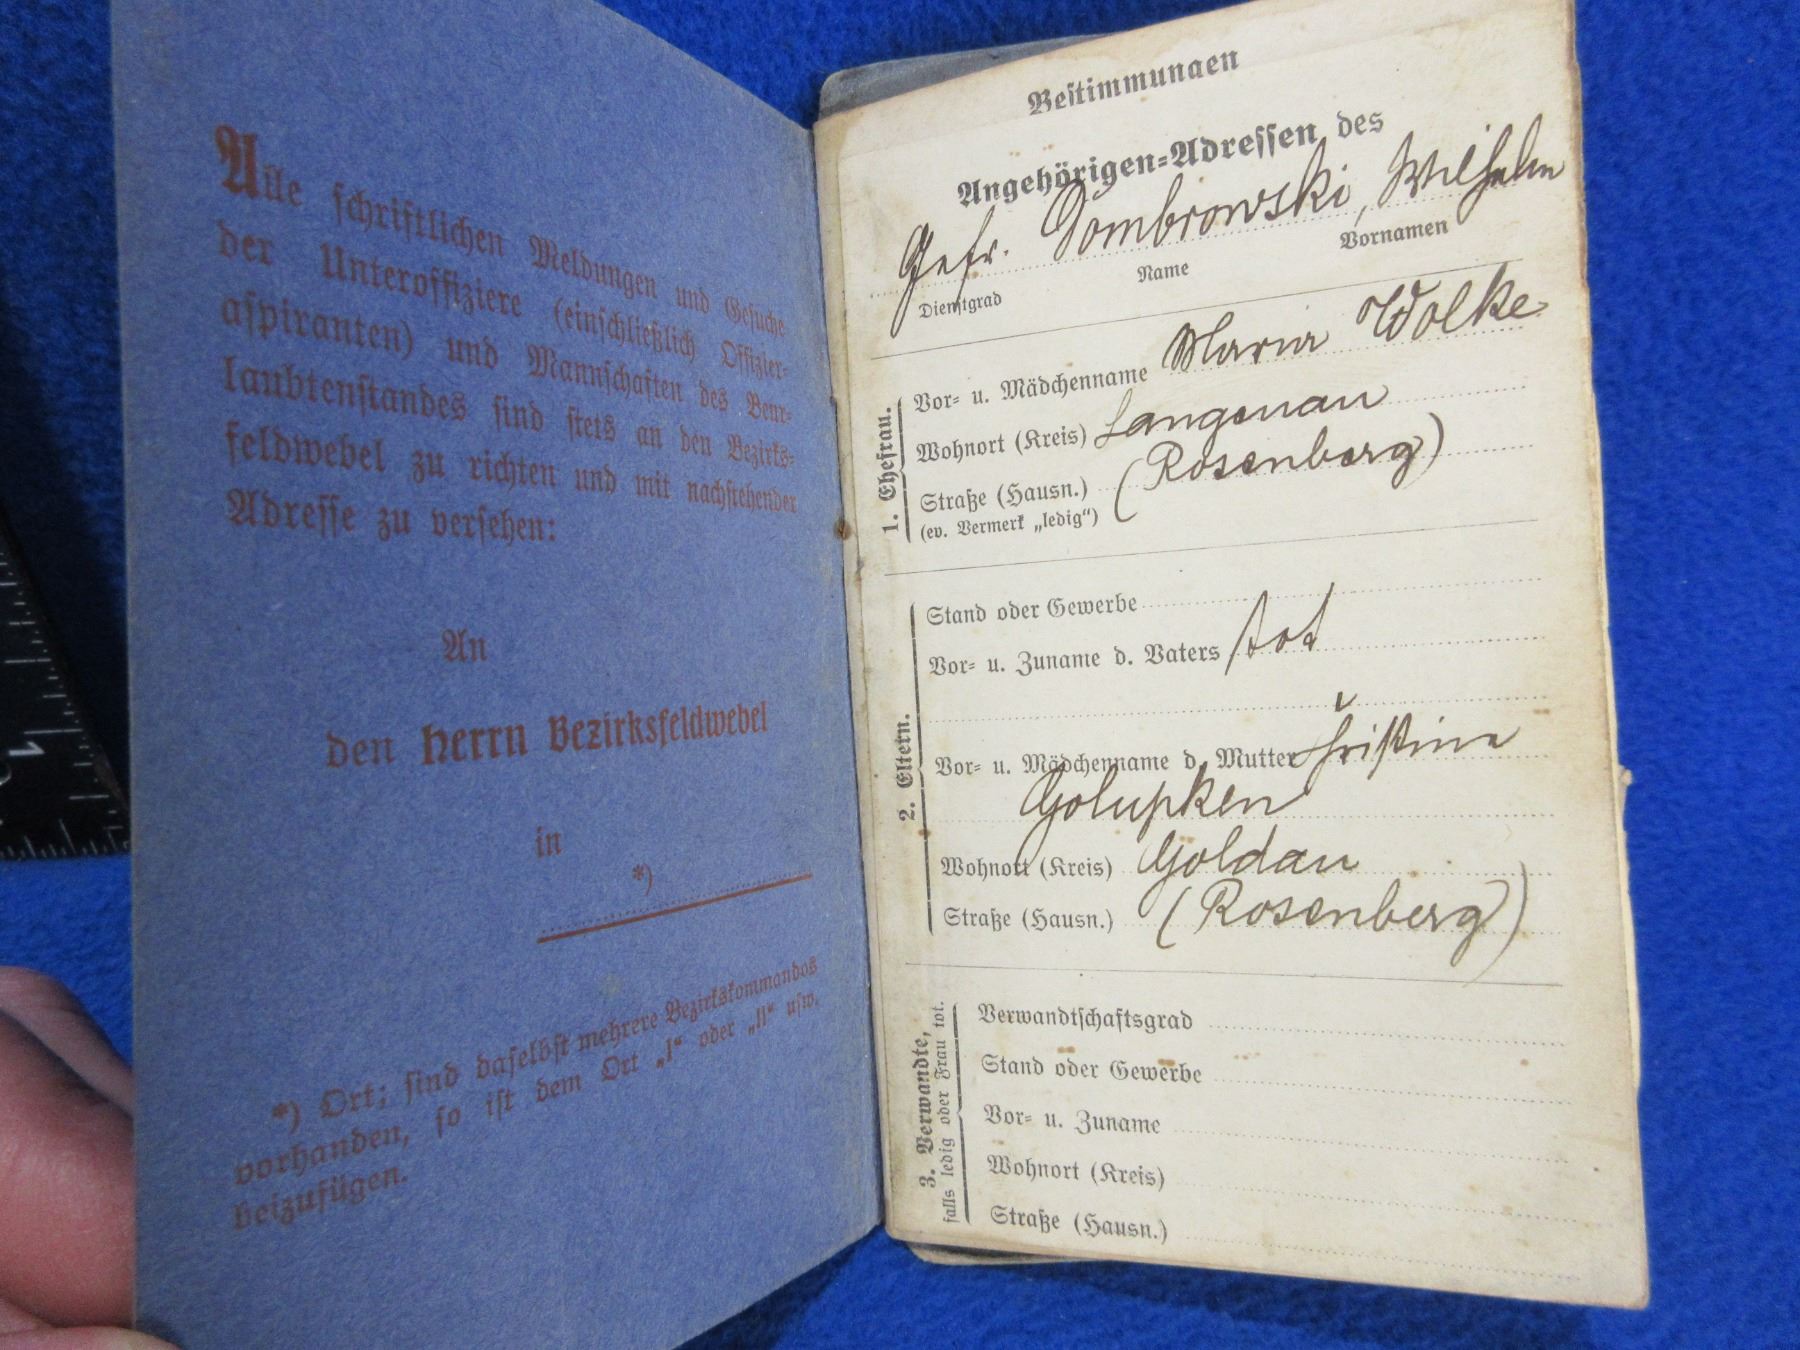 Alle schriftlichen Meldungen und Gesuche
der Unteroffiziere (einschließlich Offizier-
aspiranten) und Mannschaften des Beur-
laubtenstandes sind stets an den Bezirks-
feldwebel zu richten und mit nachstehender
Adresse zu versehen:
An
den Herrn Bezirksfeldwebel
in
*)
*) Ort; sind daselbst mehrere Bezirkskommandos
vorhanden, so ist dem Ort „I“ oder „II“ usw.
beizufügen.
Bestimmungen
Angehörigen-Adressen des
Gefr. Dombrowski, Wilhelm
Dienstgrad Name Vornamen
1. Ehefrau.
Vor- u. Mädchenname Maria Wolke
Wohnort (Kreis) Langenau
Straße (Hausn.) (Rosenberg)
(ev. Vermerk „ledig“)
2. Eltern.
Stand oder Gewerbe
Vor- u. Zuname d. Vaters tot
Vor- u. Mädchenname d. Mutter Kristine
Golupken
Wohnort (Kreis) Goldau
Straße (Hausn.) (Rosenberg)
3. Verwandte,
falls ledig oder Frau tot.
Verwandtschaftsgrad
Stand oder Gewerbe
Vor- u. Zuname
Wohnort (Kreis)
Straße (Hausn.)
1